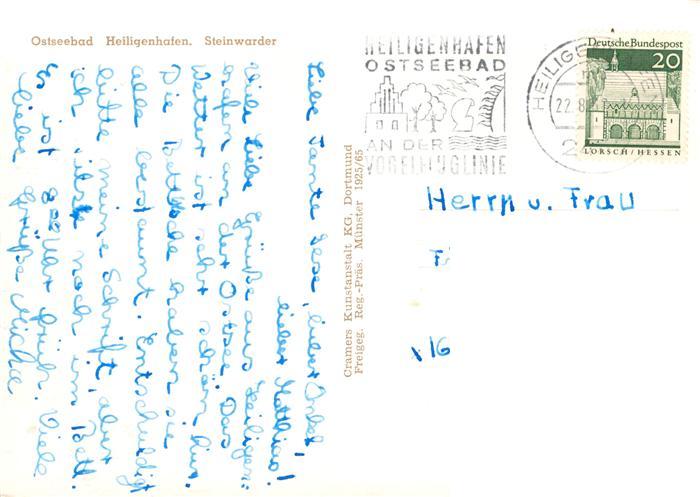 Ostseebad Heiligenhafen. Steinwarder
HEILIGENHAFEN
OSTSEEBAD
AN DER
VOGELFLUGLINIE
HEILIGE
22.8.
2
Deutsche Bundespost
20
LORSCH/HESSEN
Herrn u. Frau
16
Cramers Kunstanstalt KG, Dortmund
Freigeg. Reg.-Präs. Münster 1925/65
Liebe Tante lieber Onkel,
lieber Matthias!
viele liebe Grüße aus Heiligen-
hafen an der Ostsee. Das
Wetter ist sehr schön. Nur
Die haben sie
alle Entschuldigt
bitte meine Schrift, aber
ich noch im Bett.
Es ist 8 Uhr früh. Viele
liebe Grüße